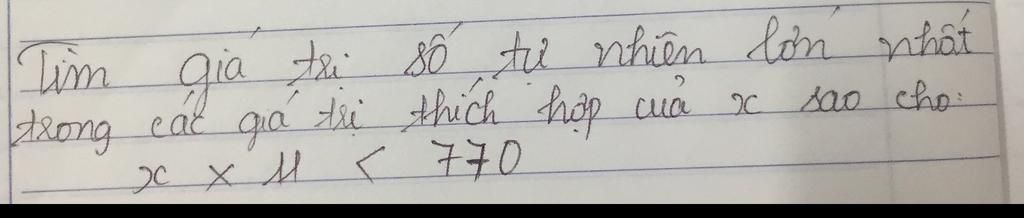 Tìm giá trị số tự nhiên lớn nhất
trong các giá trị thích hợp của x sao cho:
x × 11 < 770